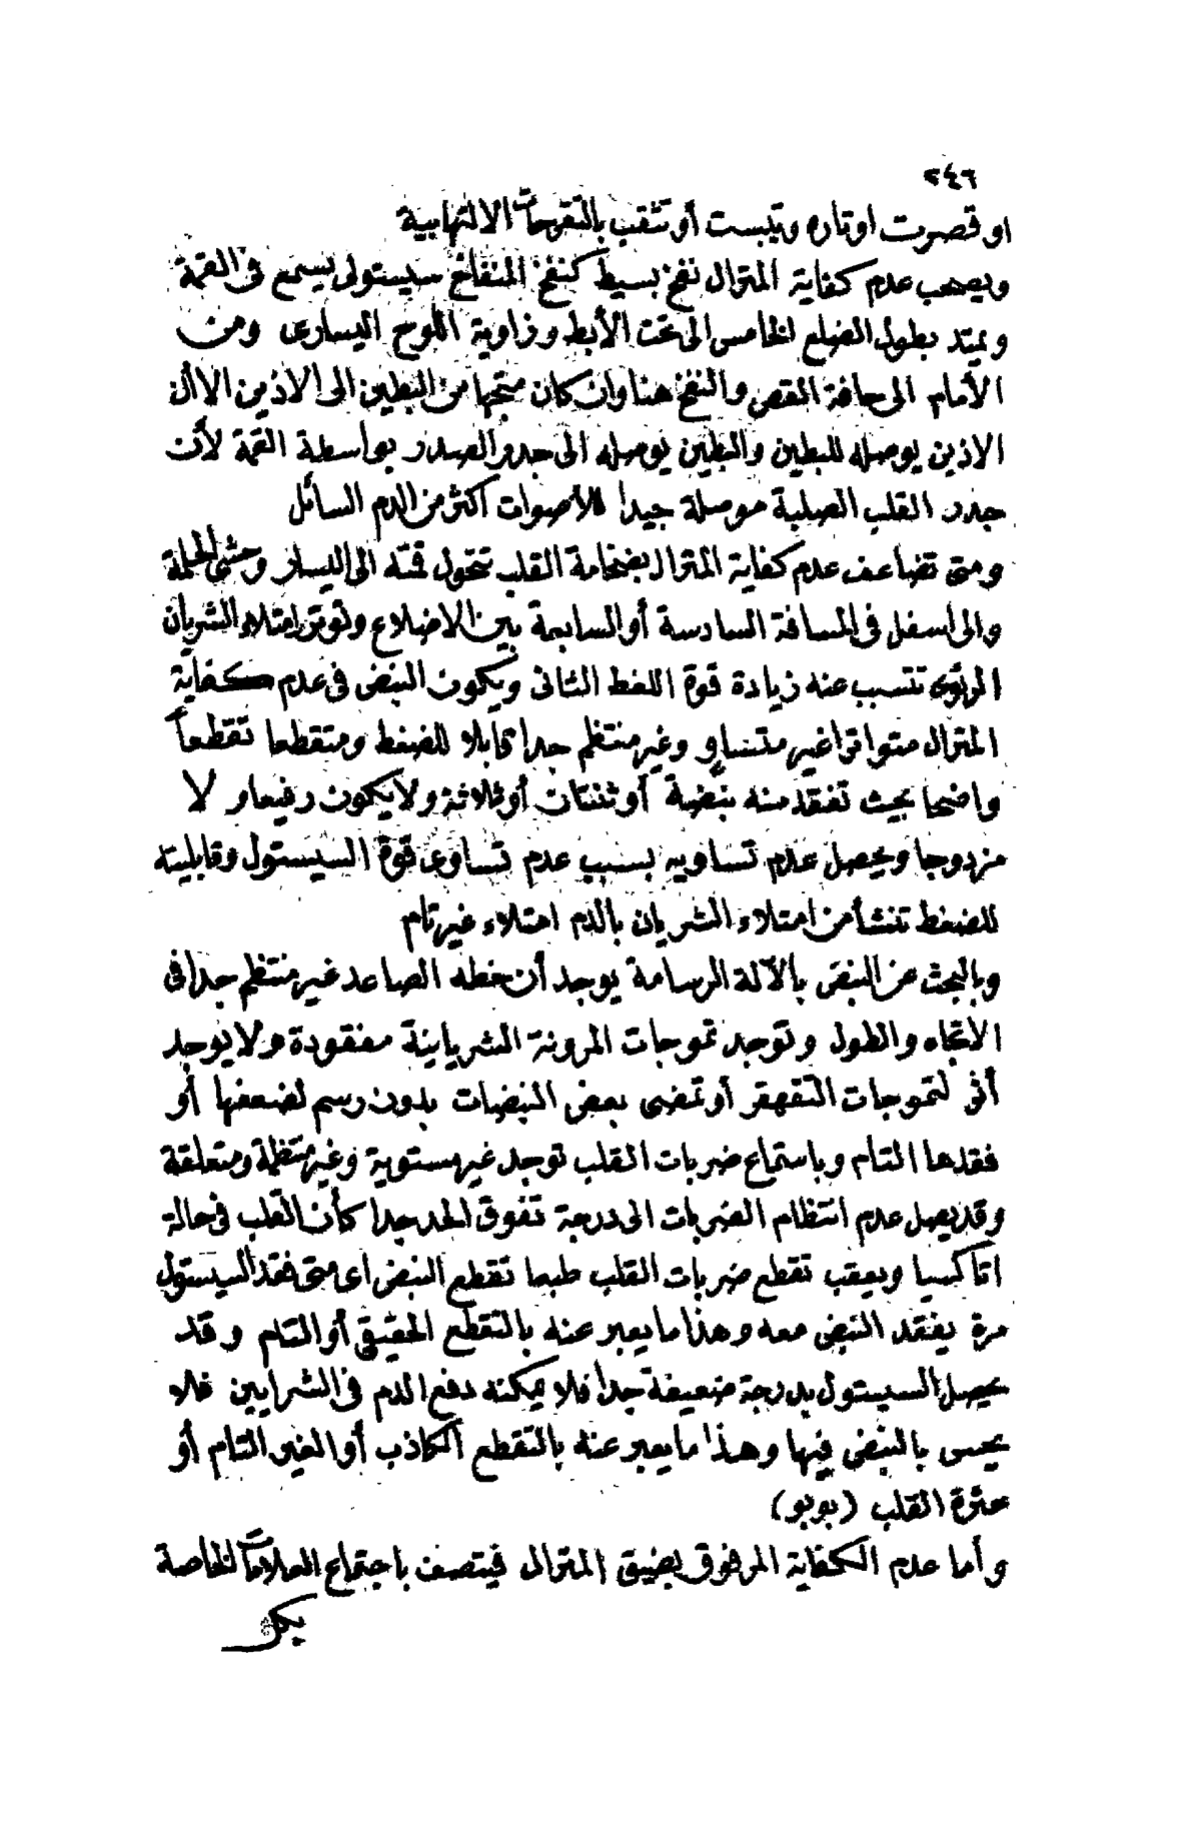 ٢٤٦
او قصرت اوتاره وتيبست أو تثقب بالتقرحات الالتهابية
ويصحب عدم كفاية المترال نفخ بسيط كنفخ المنفاخ سيستولى يسمع فى القمة
ويمتد بطول الضلع الخامس الى تحت الأبط وزاوية اللوح اليسارى ومن
الأمام الى حافة القص والنفخ هنا وان كان متجها من البطين الى الاذين الا أن
الاذين يوصله للبطين والبطين يوصله الى جدر الصدر بواسطة القمة لأن
جدر القلب الصلبة موصلة جيدا للأصوات اكثر من الدم السائل
ومتى تضاعف عدم كفاية المترال بضخامة القلب تتحول قمته الى اليسار وحشى الحلمة
والى اسفل فى المسافة السادسة أو السابعة بين الاضلاع وتوتر امتلاء الشريان
الرئوى تتسبب عنه زيادة قوة اللغط الثانى ويكون النبض فى عدم كفاية
المترال متواترا غير متساو وغير منتظم جدا قابلا للضغط ومتقطعا تقطعاً
واضحا بحيث تفقد منه نبضة أو ثنتان أو ثلاثة ولا يكون رفيعا ولا
مزدوجا ويحصل عدم تساويه بسبب عدم تساوى قوة السيستول وقابليته
للضغط تنشأ من امتلاء الشريان بالدم امتلاء غير تام
وبالبحث عن النبض بالآلة الرسامة يوجد أن خطه الصاعد غير منتظم جدا فى
الاتجاه والطول وتوجد تموجات المرونة الشريانية مفقودة ولا يوجد
أثر لتموجات التقهقر أو تمضى بعض النبضات بدون رسم لضعفها أو
فقدها التام وباستماع ضربات القلب توجد غير مستوية وغير منتظمة ومتعلقة
وقد يصل عدم انتظام الضربات الى درجة تفوق الحد جدا كأن القلب فى حالة
اتاكسيا ويعقب تقطع ضربات القلب طبعا تقطع النبض اى متى فقد السيستول
مرة يفقد النبض معه وهذا ما يعبر عنه بالتقطع الحقيقى أو التام وقد
يحصل السيستول بدرجة ضعيفة جدا فلا يمكنه دفع الدم فى الشرايين فلا
يحس بالنبض فيها وهذا ما يعبر عنه بالتقطع الكاذب أو الغير التام أو
عثرة القلب (بوبو)
وأما عدم الكفاية المرفوق بضيق المترال فيتصف باجتماع العلامات الخاصة
بكل